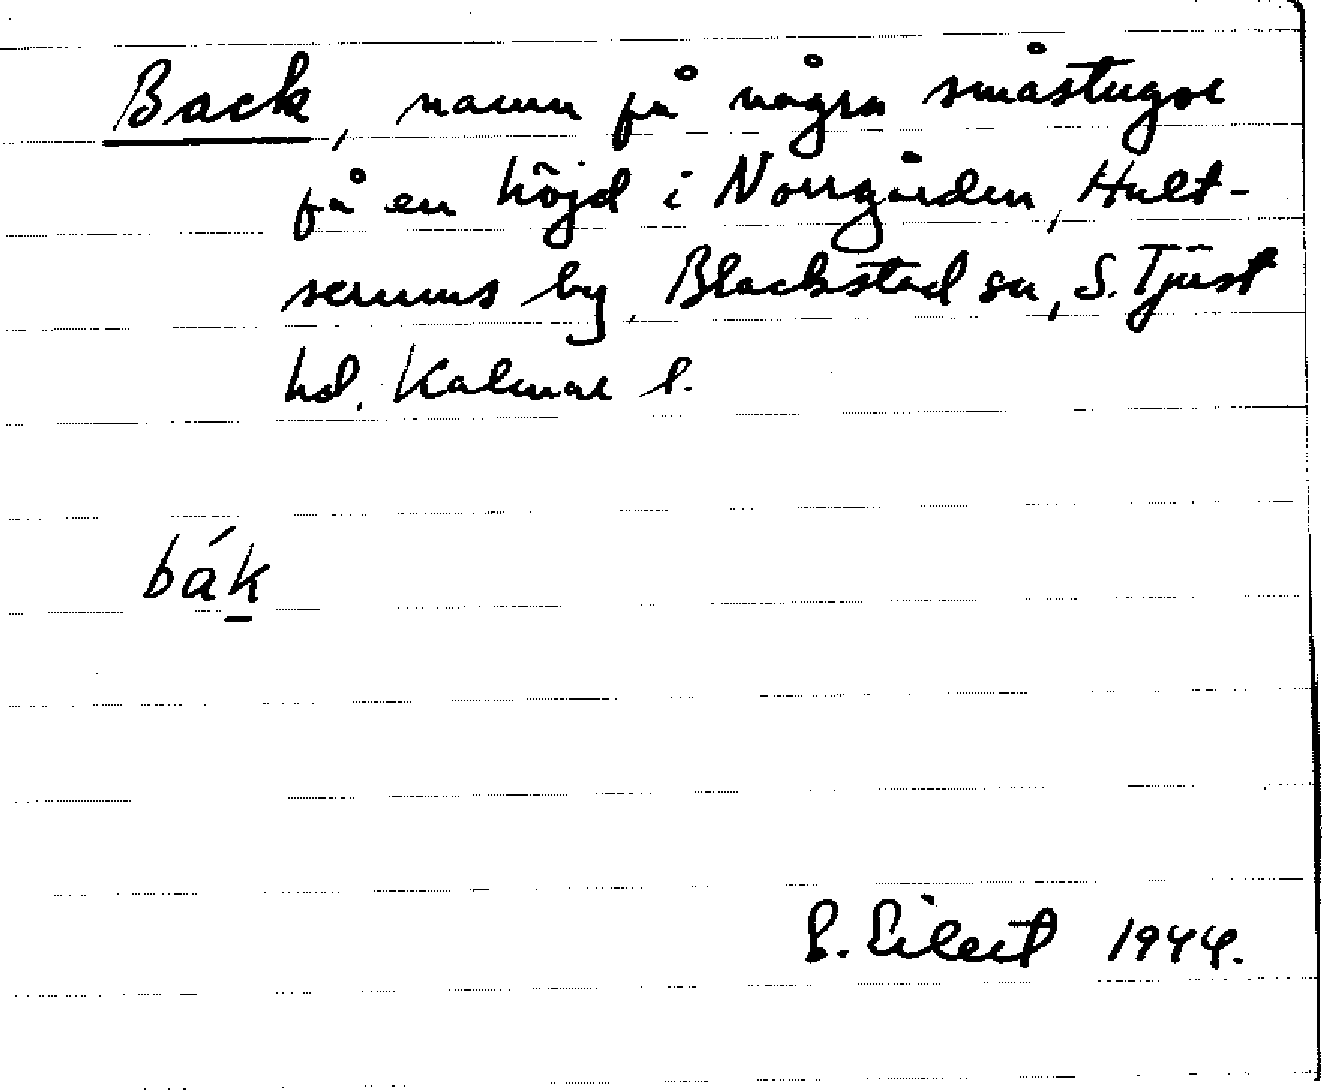 Back, namn på några småstugor
på en höjd i Norrgården, Hult-
serums by, Blackstad sn, S. Tjust
hd, Kalmar l.
bák
1944.